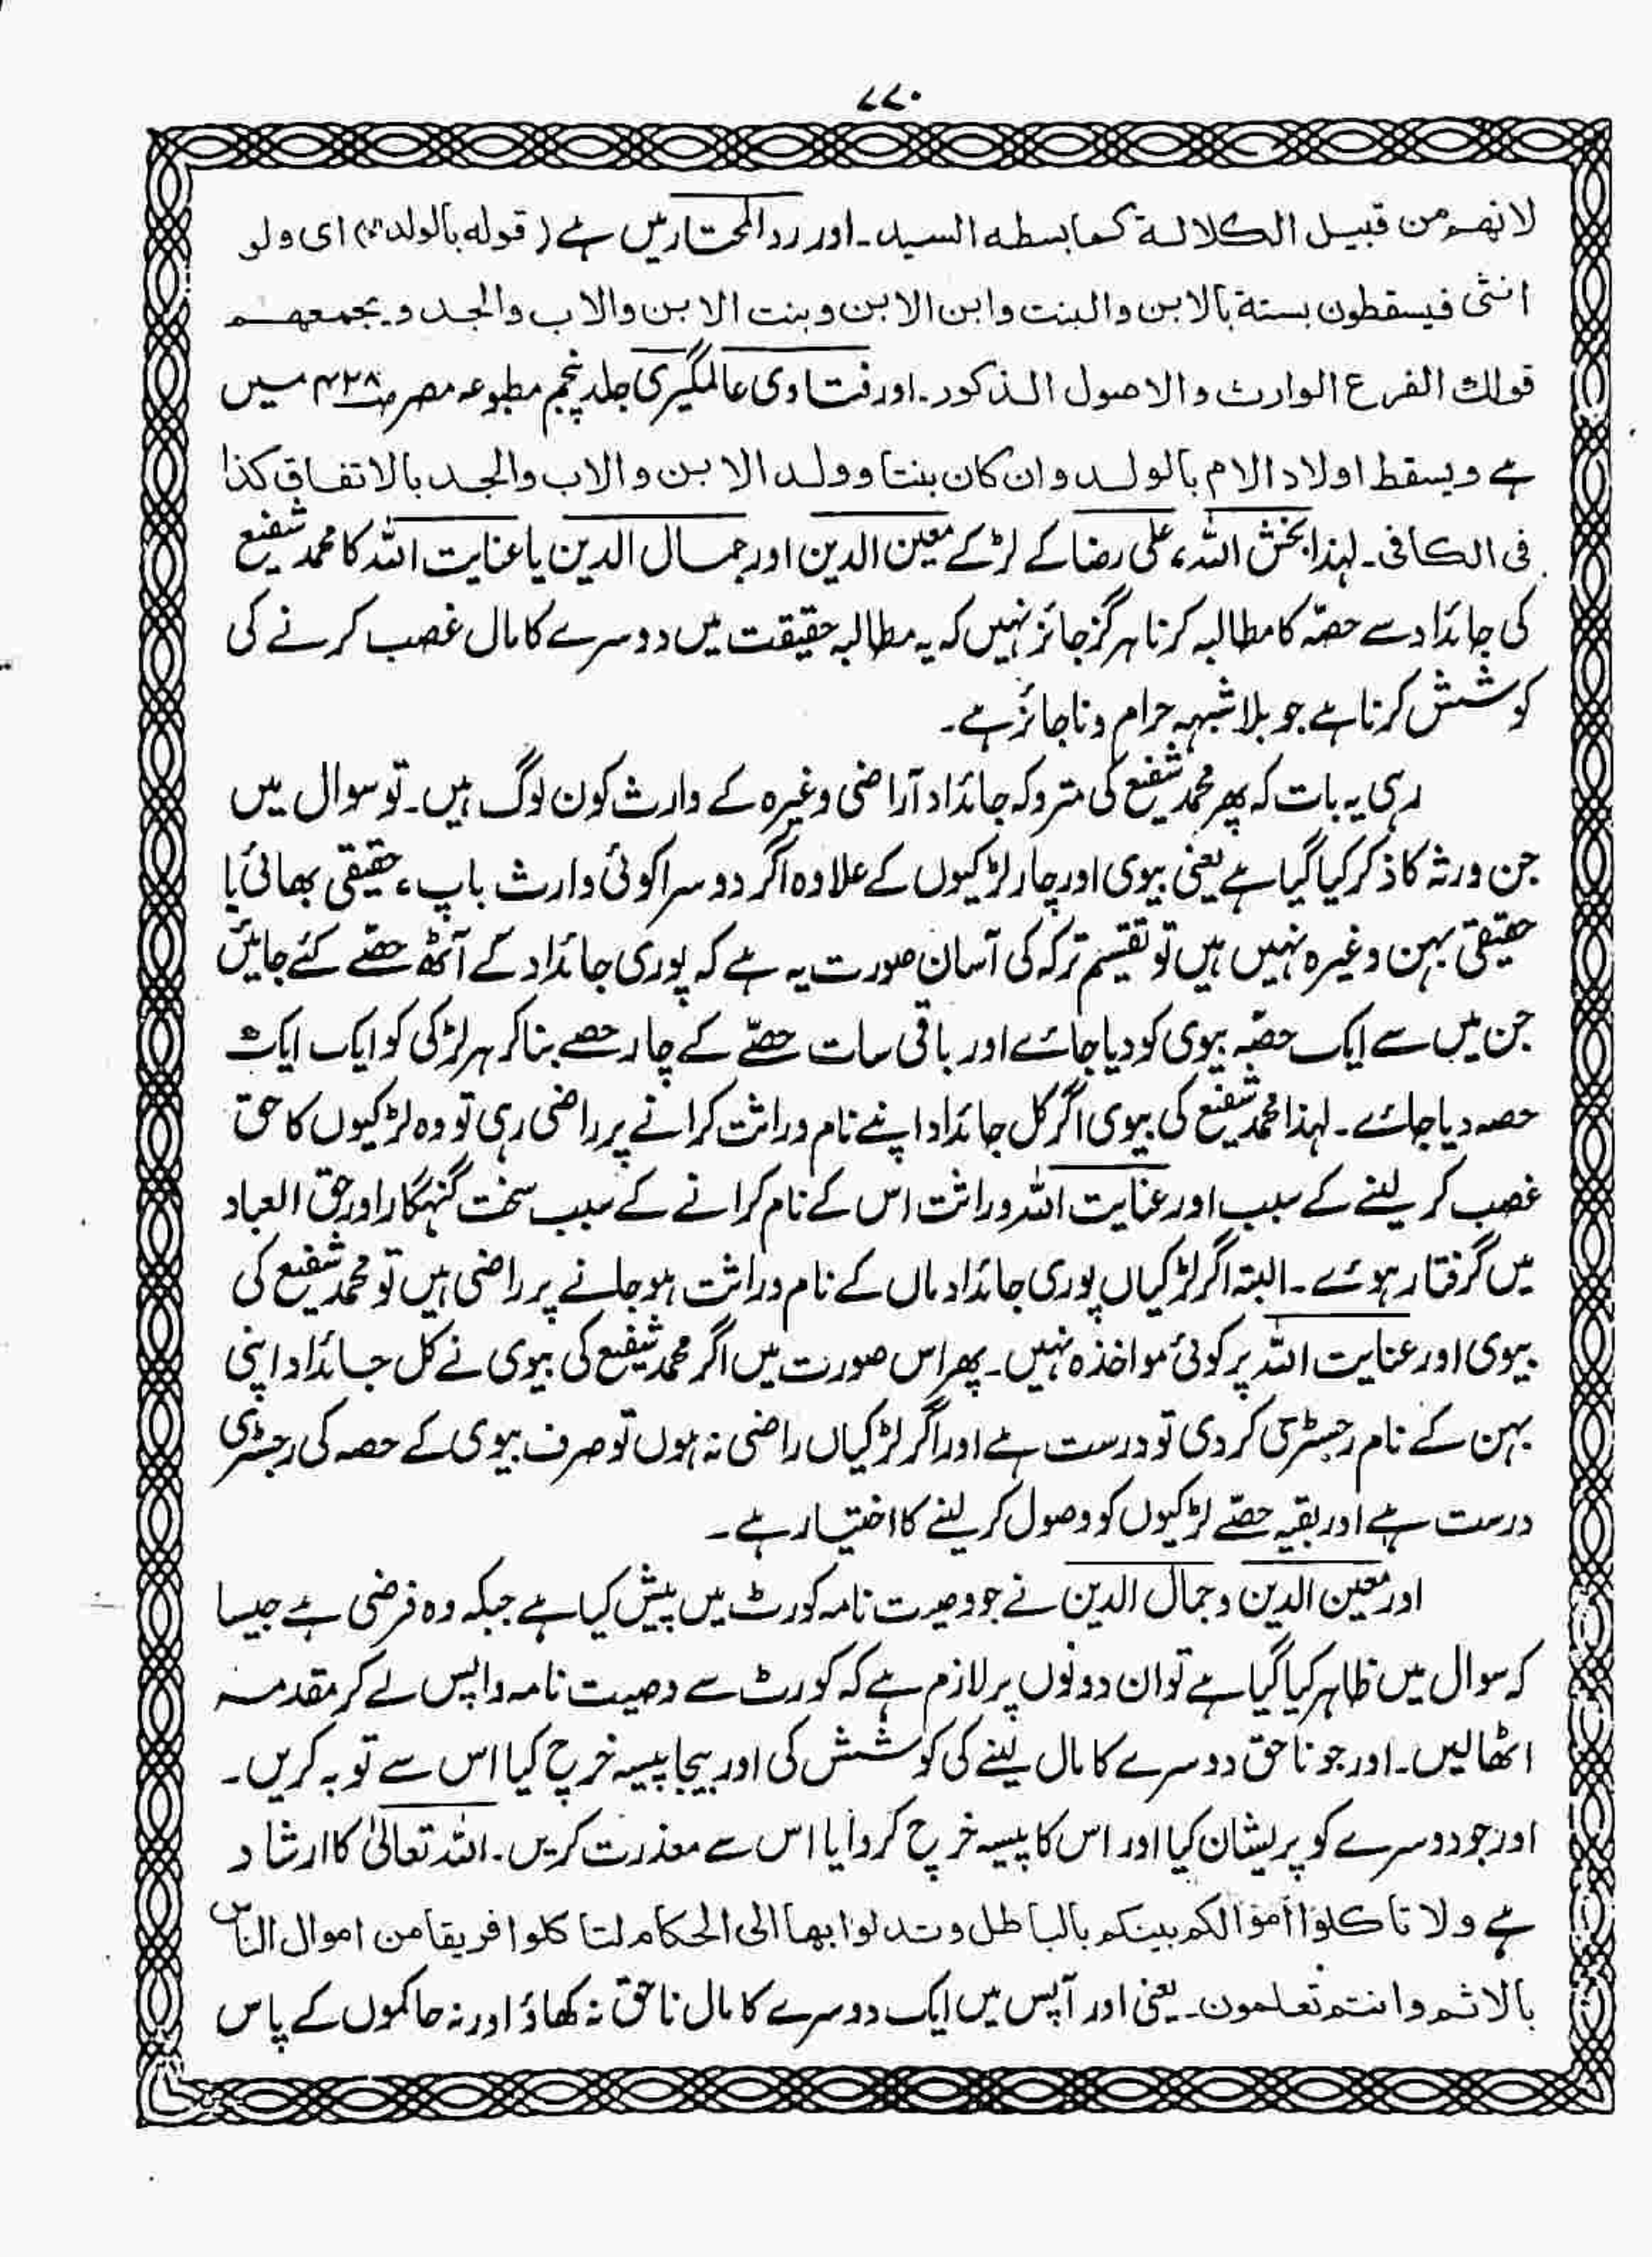 ۷۷۰
لانهم من قبیل الکلالة کما بسطه السید۔ اور ردالمحتار میں ہے (قوله بالولد الخ) ای ولو
انثی فیسقطون بستة بالابن والبنت وابن الابن وبنت الابن والاب والجد ویجمعهم
قولك الفرع الوارث والاصول الذکور۔ اور فتاوی عالمگیری جلد پنجم مطبوعہ مصر ص۴۳۸ میں
ہے ویسقط اولاد الام بالولد وان کان بنتا وولد الابن والاب والجد بالاتفاق کذا
فی الکافی۔ لہذا بخش اللہ، علی رضا کے لڑکے معین الدین اور جمال الدین یا عنایت اللہ کا محمد شفیع
کی جائداد سے حصّہ کا مطالبہ کرنا ہرگز جائز نہیں کہ یہ مطالبہ حقیقت میں دوسرے کا مال غصب کرنے کی
کوشش کرنا ہے جو بلا شبہہ حرام و ناجائز ہے۔
رہی یہ بات کہ پھر محمد شفیع کی متروکہ جائداد آراضی وغیرہ کے وارث کون لوگ ہیں۔ تو سوال میں
جن ورثہ کا ذکر کیا گیا ہے یعنی بیوی اور چار لڑکیوں کے علاوہ اگر دوسرا کوئی وارث باپ، حقیقی بھائی یا
حقیقی بہن وغیرہ نہیں ہیں تو تقسیم ترکہ کی آسان صورت یہ ہے کہ پوری جائداد کے آٹھ حصّے کئے جائیں
جن میں سے ایک حصّہ بیوی کو دیا جائے اور باقی سات حصّے کے چار حصے بنا کر ہر لڑکی کو ایک ایک
حصہ دیا جائے۔ لہذا محمد شفیع کی بیوی اگر کل جائداد اپنے نام وراثت کرانے پر راضی رہی تو وہ لڑکیوں کا حق
غصب کر لینے کے سبب اور عنایت اللہ وراثت اس کے نام کرانے کے سبب سخت گنہگار اور حق العباد
میں گرفتار ہوئے۔ البتہ اگر لڑکیاں پوری جائداد ماں کے نام وراثت ہو جانے پر راضی ہیں تو محمد شفیع کی
بیوی اور عنایت اللہ پر کوئی مواخذہ نہیں۔ پھر اس صورت میں اگر محمد شفیع کی بیوی نے کل جائداد اپنی
بہن کے نام رجسٹری کر دی تو درست ہے اور اگر لڑکیاں راضی نہ ہوں تو صرف بیوی کے حصہ کی رجسٹری
درست ہے اور بقیہ حصّے لڑکیوں کو وصول کر لینے کا اختیار ہے۔
اور معین الدین و جمال الدین نے جو وصیت نامہ کورٹ میں پیش کیا ہے جبکہ وہ فرضی ہے جیسا
کہ سوال میں ظاہر کیا گیا ہے تو ان دونوں پر لازم ہے کہ کورٹ سے وصیت نامہ واپس لے کر مقدمہ
اٹھا لیں۔ اور جو ناحق دوسرے کا مال لینے کی کوشش کی اور بیجا پیسہ خرچ کیا اس سے توبہ کریں۔
اور جو دوسرے کو پریشان کیا اور اس کا پیسہ خرچ کروایا اس سے معذرت کریں۔ اللہ تعالیٰ کا ارشاد
ہے ولا تاکلوا اموالکم بینکم بالباطل وتدلوا بها الی الحکام لتاکلوا فریقا من اموال الناس
بالاثم وانتم تعلمون۔ یعنی اور آپس میں ایک دوسرے کا مال ناحق نہ کھاؤ اور نہ حاکموں کے پاس